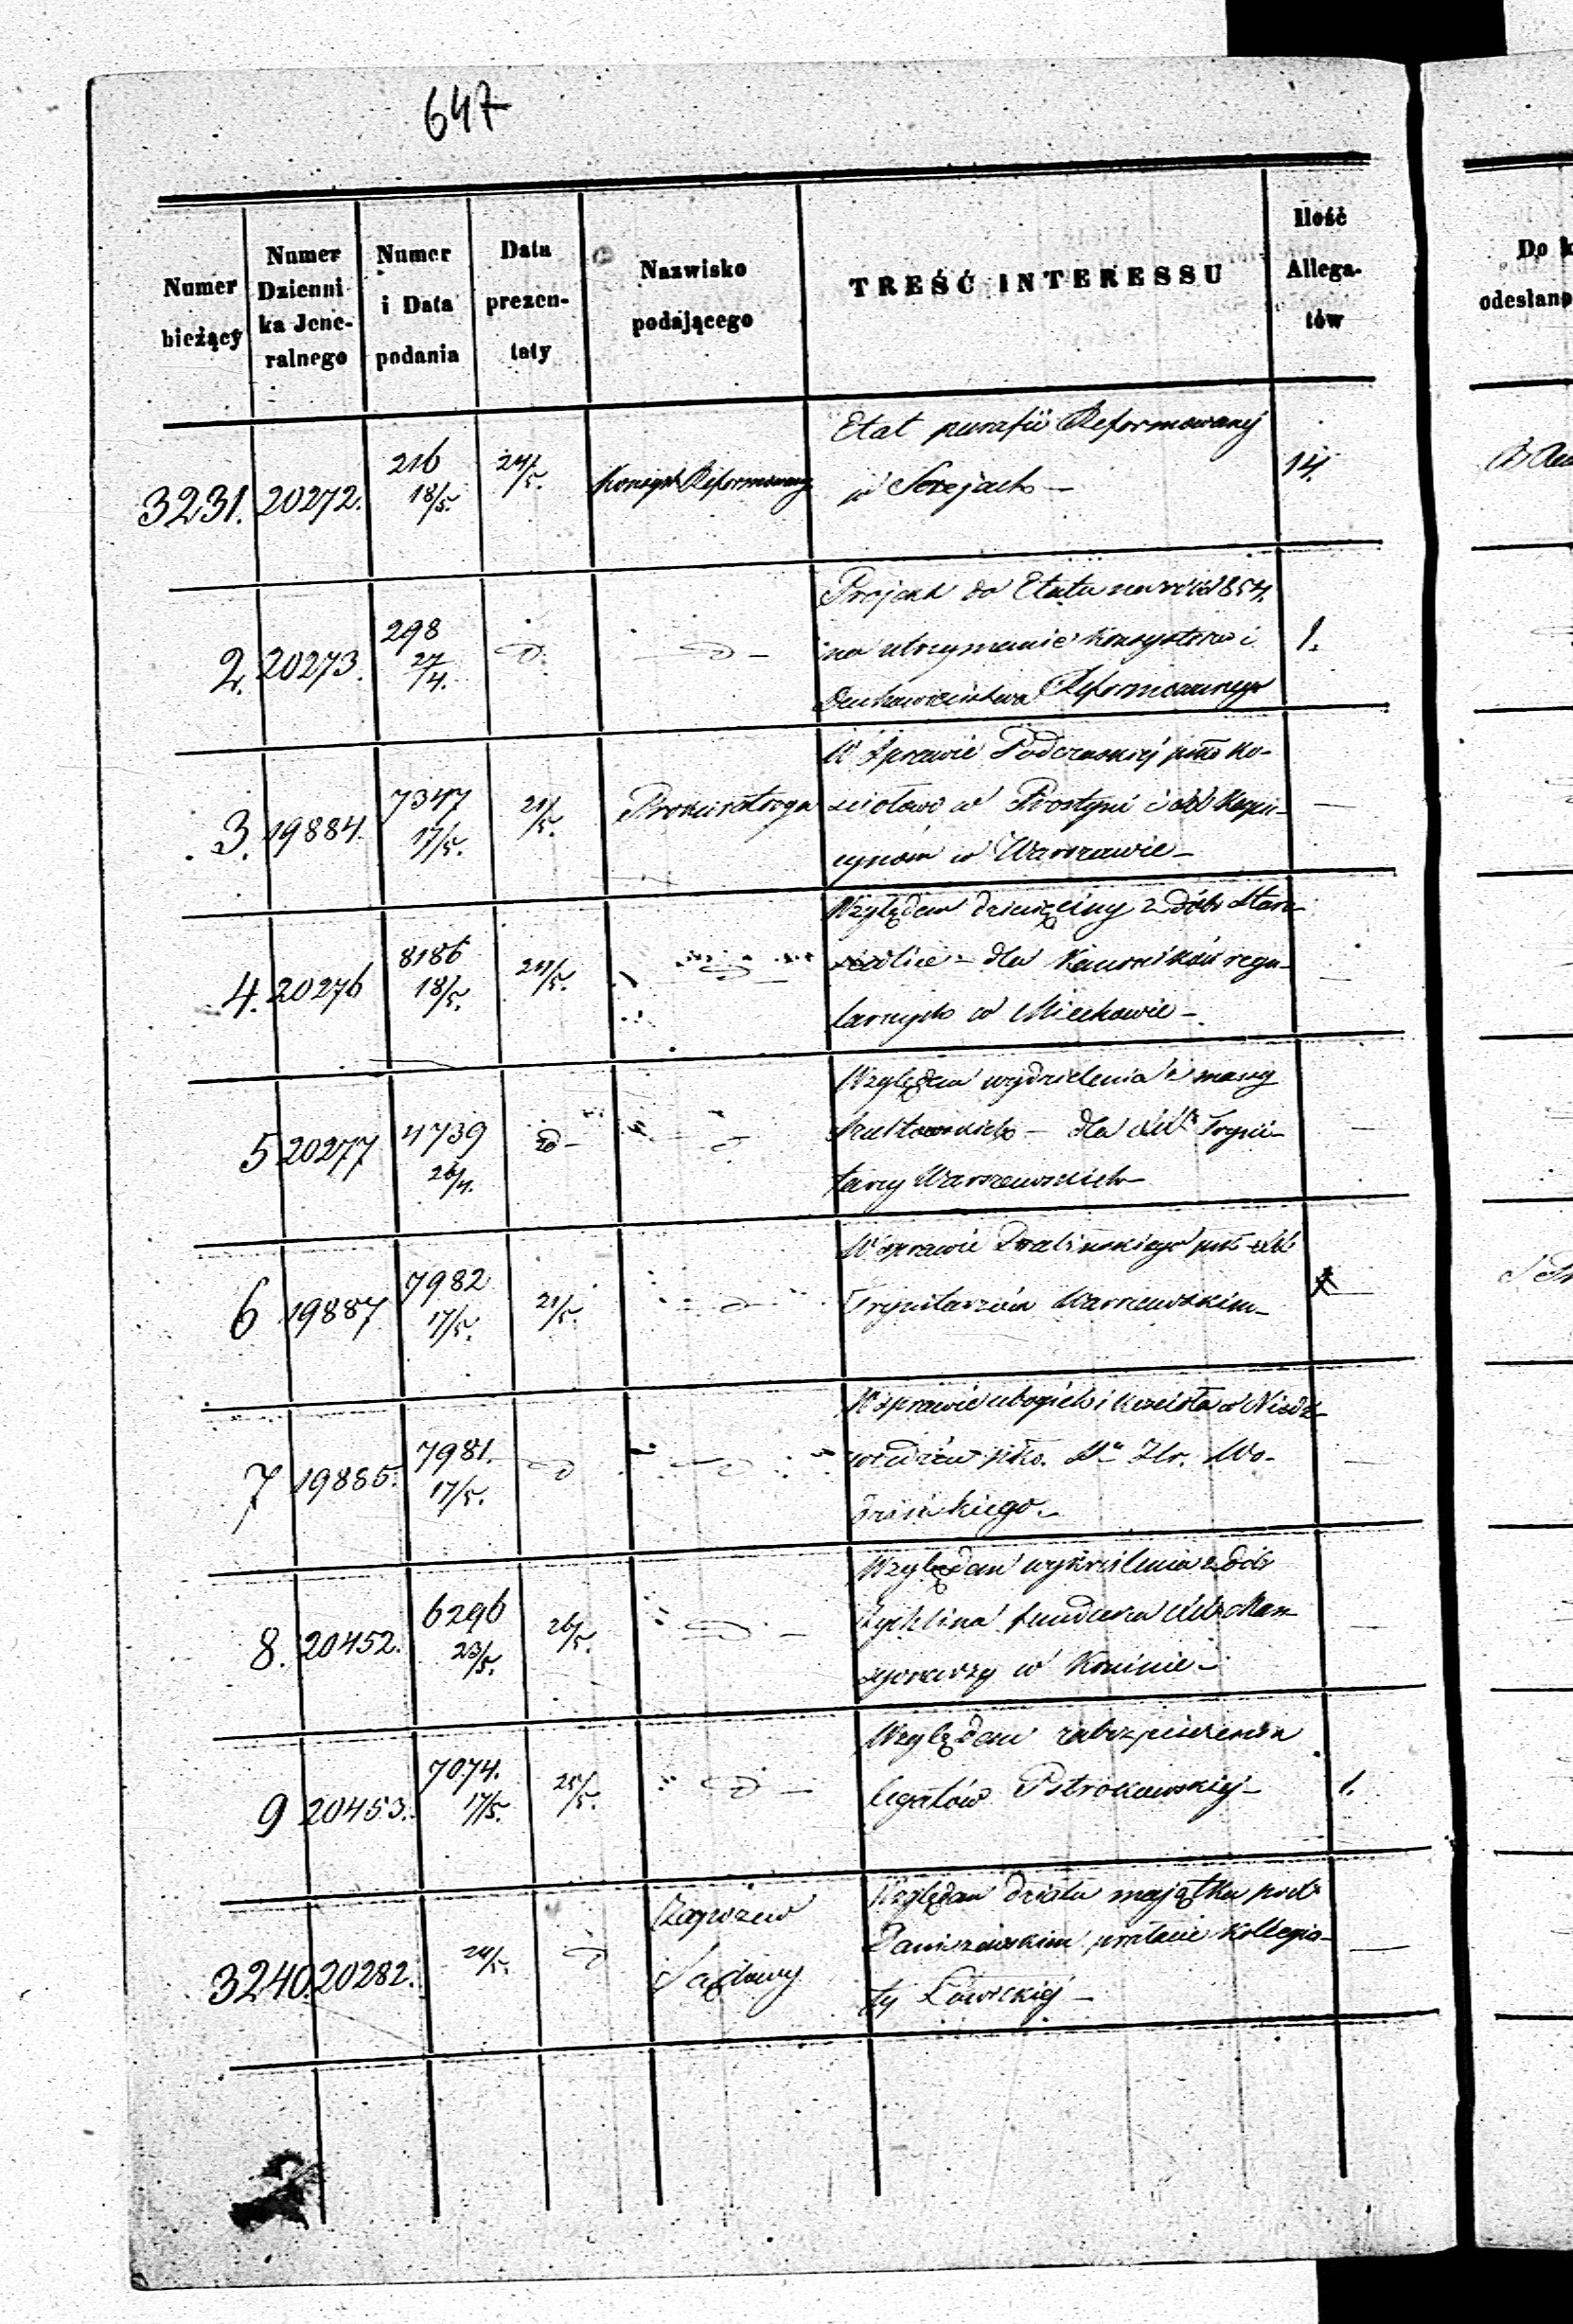 647
Numer bieżący
Numer Dzienni-ka Jene-ralnego
Numer i Data podania
Data prezen-taty
Nazwisko podającego
TREŚĆ INTERESSU
Ilość Allega-tów
Do k
odesłano
3231. 20272. 216 18/5. 24/5. Konsyst. Reformowany
Etat parafii Reformowanej
w Serejach — 14.
2. 20273. 298 27/4. D. — D —
Projekt do Etatu na rok 1854.
na utrzymanie Konsystorza i 1.
Duchowieństwa Reformowanego
3. 19884. 7347 17/5. 21/5. Prokuratorya
W sprawie Podczaskiej pko Ko-
ściołowi w Prostyni i OO. Kapu-
cynom w Warszawie —
4. 20276 8186 18/5. 24/5. — D —
Względem dziesięciny z dóbr
— dla Kanoników regu-
larnych w Miechowie —
5 20277 4739 26/4. D — D
Względem wydzielenia z massy
— dla XX. Tryni-
tarzy Warszawskich —
6 19887 7982 17/5. 21/5. — D —
W sprawie pko XX.
Trynitarzom Warszawskim —
7 19885. 7981. 17/5. D — D
W sprawie ubogich i Kościoła w Niedź-
wiedziu pko. Hr. Wo-
dzickiego —
8. 20452. 6296 23/5. 26/5. — D —
Względem wykreślenia z dóbr
Żychlina funduszu
w Koninie —
9 20453. 7074. 17/5. 25/5. — D —
Względem zabezpieczenia
legatów Pstrokońskiej — 1.
3240. 20282. 24/5. D Zapozew Sądowy
Względem działu majątku pod
prałacie Kollegia-
ty Łowickiej —